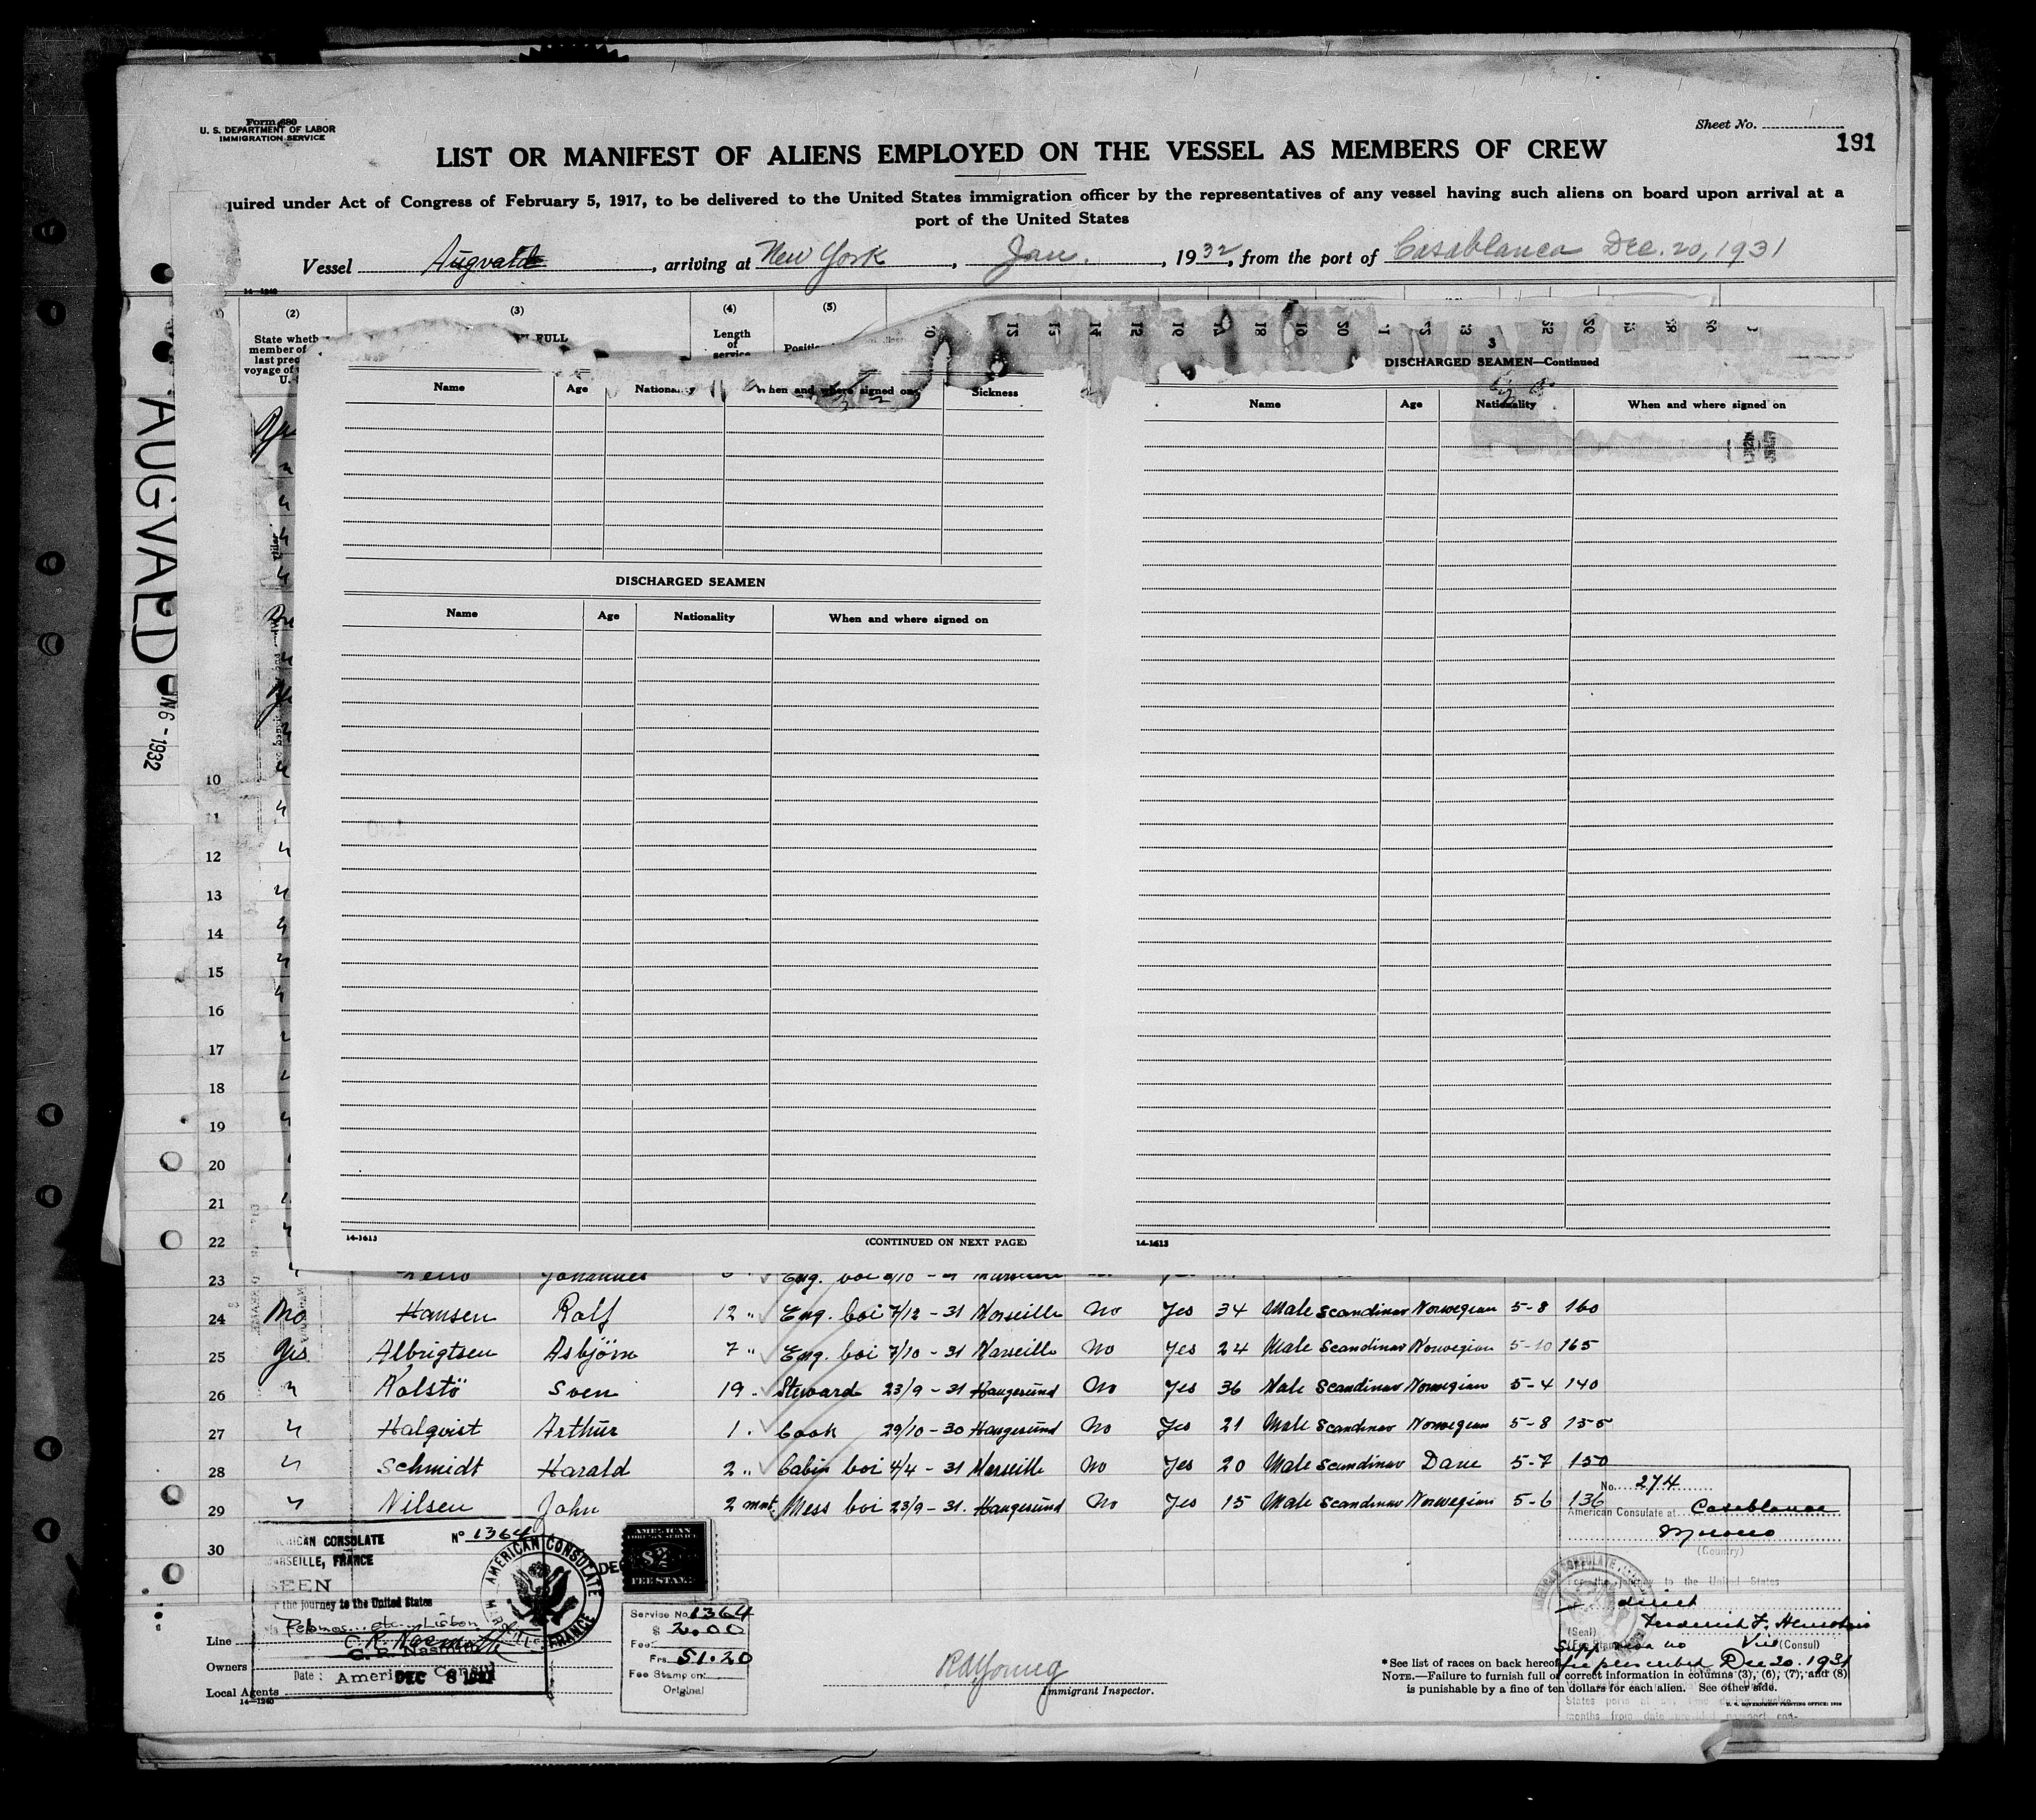 Form 680
U. S. DEPARTMENT OF LABOR
IMMIGRATION SERVICE
Sheet No.
191
LIST OR MANIFEST OF ALIENS EMPLOYED ON THE VESSEL AS MEMBERS OF CREW
quired under Act of Congress of February 5, 1917, to be delivered to the United States immigration officer by the representatives of any vessel having such aliens on board upon arrival at a
port of the United States
Vessel Augvald, arriving at New York, Jan., 1932, from the port of Casablanca Dec. 20, 1931
14-1240
(2) (3) (4) (5)
State wheth
member of
last prec
voyage of
U.
FULL
Length
of
service
Positio
AUGVALD
N 6 - 1932
Name Age Nationality When and where signed on Sickness
DISCHARGED SEAMEN
Name Age Nationality When and where signed on
14-1613
(CONTINUED ON NEXT PAGE)
3
DISCHARGED SEAMEN—Continued
Name Age Nationality When and where signed on
14-1613
10
11
12
13
14
15
16
17
18
19
20
21
22
23 Johannes Eng. boi
24 No Hansen Rolf 12 " Eng. boi 7/12 - 31 Marseille No Yes 34 Male Scandinav Norwegian 5-8 160
25 Yes Albrigtsen Asbjörn 7 " Eng. boi 7/10 - 31 Marseille No Yes 24 Male Scandinav Norwegian 5-10 165
26 " Kolstö Sven 19 " Steward 23/9 - 31 Haugesund No Yes 36 Male Scandinav Norwegian 5-4 140
27 " Halqvist Arthur 1 " Cook 29/10 - 30 Haugesund No Yes 21 Male Scandinav Norwegian 5-8 155
28 " Schmidt Harald 2 " Cabin boi 4/4 - 31 Marseille No Yes 20 Male Scandinav Dane 5-7 150
29 " Nilsen John 2 mnt. Mess boi 23/9 - 31. Haugesund No Yes 15 Male Scandinav Norwegian 5-6 136
30
RICAN CONSULATE
ARSEILLE, FRANCE
No 1364
SEEN
r the journey to the United States
Lisbon
C. R. Nasmith
American Consul
Date: DEC 8 1931
AMERICAN CONSULATE
FRANCE
DEC
AMERICAN
FOREIGN SERVICE
$2
FEE STAMP
Service No. 1364
Fee: $ 2.00
Frs. 51.20
Fee Stamp on:
Original
Line
Owners
Local Agents
14-1240
R A Young
Immigrant Inspector.
No. 274
American Consulate at Casablanca
Morocco
(Country)
For the journey to the United States
direct
(Seal)
(Fee Stamp)
Vice (Consul)
Dec 20. 1931
*See list of races on back hereof.
NOTE.—Failure to furnish full or correct information in columns (3), (6), (7), and (8)
is punishable by a fine of ten dollars for each alien. See other side.
U. S. GOVERNMENT PRINTING OFFICE: 1930
months from date